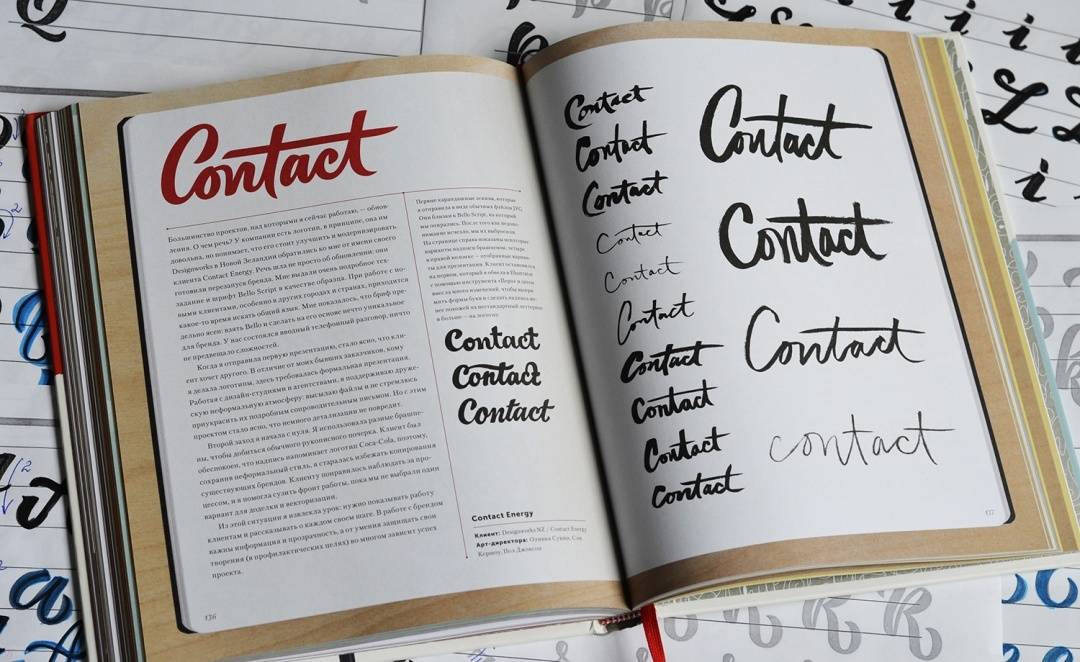 Contact
Большинство проектов, над которыми я сейчас работаю, — обнов-
ления. О чем речь? У компании есть логотип, в принципе, она им
довольна, но понимает, что его стоит улучшить и модернизировать.
Designworks в Новой Зеландии обратились ко мне от имени своего
клиента Contact Energy. Речь шла не просто об обновлении: они
готовили перезапуск бренда. Мне выдали очень подробное тех-
задание и шрифт Bello Script в качестве образца. При работе с но-
выми клиентами, особенно в других городах и странах, приходится
какое-то время искать общий язык. Мне показалось, что бриф пре-
дельно ясен: взять Bello и сделать на его основе нечто уникальное
для бренда. У нас состоялся вводный телефонный разговор, ничто
не предвещало сложностей.
Когда я отправила первую презентацию, стало ясно, что кли-
ент хочет другого. В отличие от моих бывших заказчиков, кому
я делала логотипы, здесь требовалась формальная презентация.
Работая с дизайн-студиями и агентствами, я поддерживаю друже-
скую неформальную атмосферу: высылаю файлы и не стремлюсь
приукрасить их подробным сопроводительным письмом. Но с этим
проектом стало ясно, что немного детализации не повредит.
Второй заход я начала с нуля. Я использовала разные брашпе-
ны, чтобы добиться обычного рукописного почерка. Клиент был
обеспокоен, что надпись напоминает логотип Coca-Cola, поэтому,
сохраняя неформальный стиль, я старалась избежать копирования
существующих брендов. Клиенту понравилось наблюдать за про-
цессом, и я помогла сузить фронт работы, пока мы не выбрали один
вариант для доделки и векторизации.
Из этой ситуации я извлекла урок: нужно показывать работу
клиентам и рассказывать о каждом своем шаге. В работе с брендом
важны информация и прозрачность, а от умения защищать свои
творения (в профилактических целях) во многом зависит успех
проекта.
136
Первые карандашные эскизы, которые
я отправила в виде обычных файлов JPG.
Они близки к Bello Script, на который
мы опирались. После того как недопо-
нимание исчезло, мы их выбросили.
На странице справа показаны некоторые
варианты надписи брашпеном; четыре
в правой колонке — отобранные вариан-
ты для презентации. Клиент остановился
на первом, который я обвела в Illustrator
с помощью инструмента «Перо» и затем
внесла много изменений, чтобы выпра-
вить формы букв и сделать надпись ме-
нее похожей на нестандартный леттеринг
и больше — на логотип.
Contact
Contact
Contact
Contact Energy
Клиент: Designworks NZ / Contact Energy
Contact
Contact
Contact
Contact
Contact
Contact
Contact
Contact
Contact
Contact
Contact
Contact
Contact
contact
137